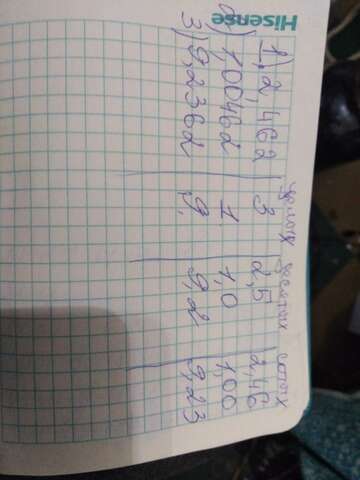 Hisense
целых десятых сотых
1) 2,462 3 2,5 2,46
2) 1,00462 1 1,0 1,00
3) 9,2362 9. 9,2 9,23